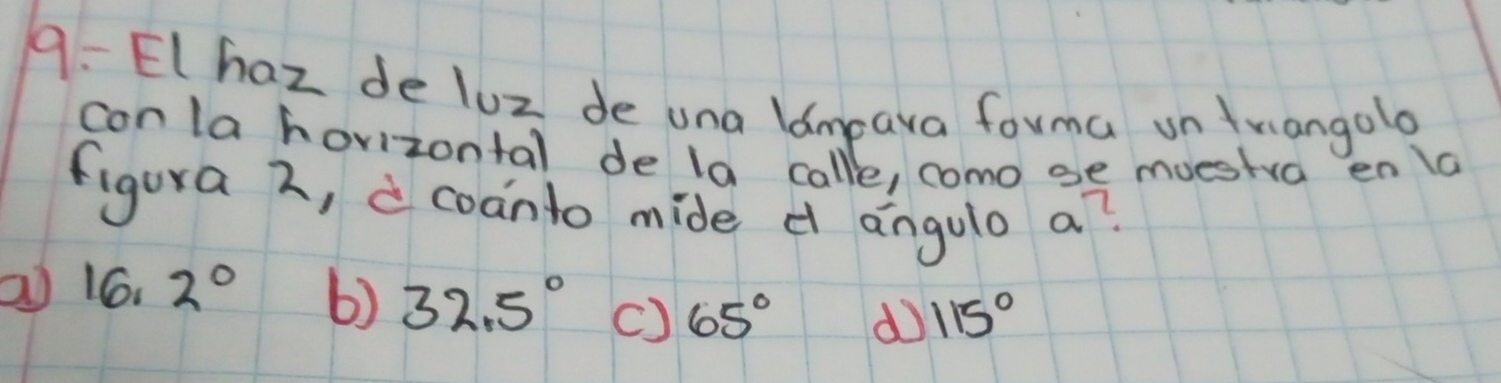 9.- El haz de luz de una lámpara forma un triangulo
con la horizontal de la calle, como se muestra en la
figura 2, ¿ coánto mide el ángulo a?
a) 16.2° b) 32.5° c) 65° d) 115°